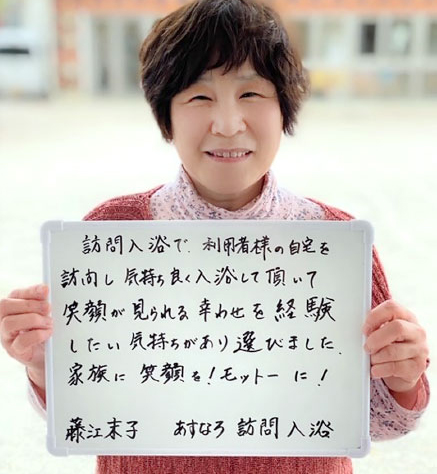 訪問入浴で、利用者様の自宅を
訪問し 気持ち良く入浴して頂いて
笑顔が見られる幸わせを経験
したい気持ちがあり選びました。
家族に 笑顔を!モットーに!
藤江末子 あすなろ訪問入浴